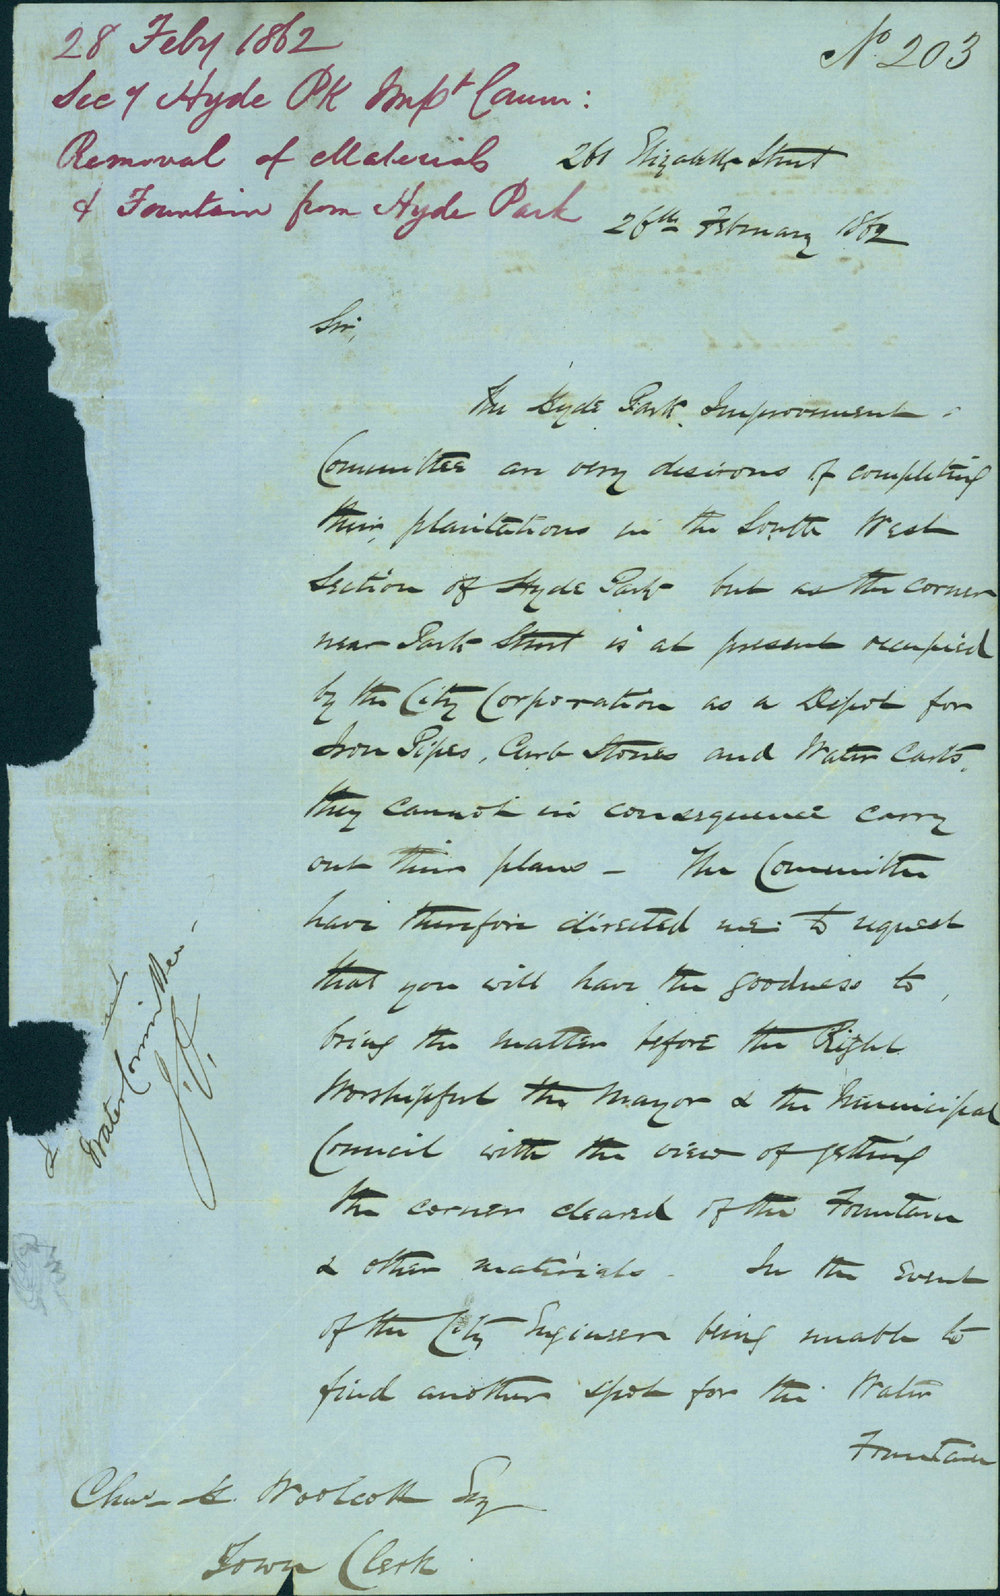 28 Feby 1862
Secy Hyde Pk Impt Comm:
Removal of Materials
& Fountain from Hyde Park
No. 203
261 Elizabeth Street
26th February 1862
Sir,
The Hyde Park Improvement
Committee are very desirous of completing
their plantations in the South West
Section of Hyde Park but as the corner
near Park Street is at present occupied
by the City Corporation as a Depot for
Iron Pipes, Curb Stones and Water Carts,
they cannot in consequence carry
out their plans – The Committee
have therefore directed me to request
that you will have the goodness to
bring the matter before the Right
Worshipful the Mayor & the Municipal
Council with the view of getting
the corner cleared of the Fountain
& other materials. In the event
of the City Engineer being unable to
find another spot for the Water
Fountain
Water Committee
Chas. H. Woolcott Esq
Town Clerk